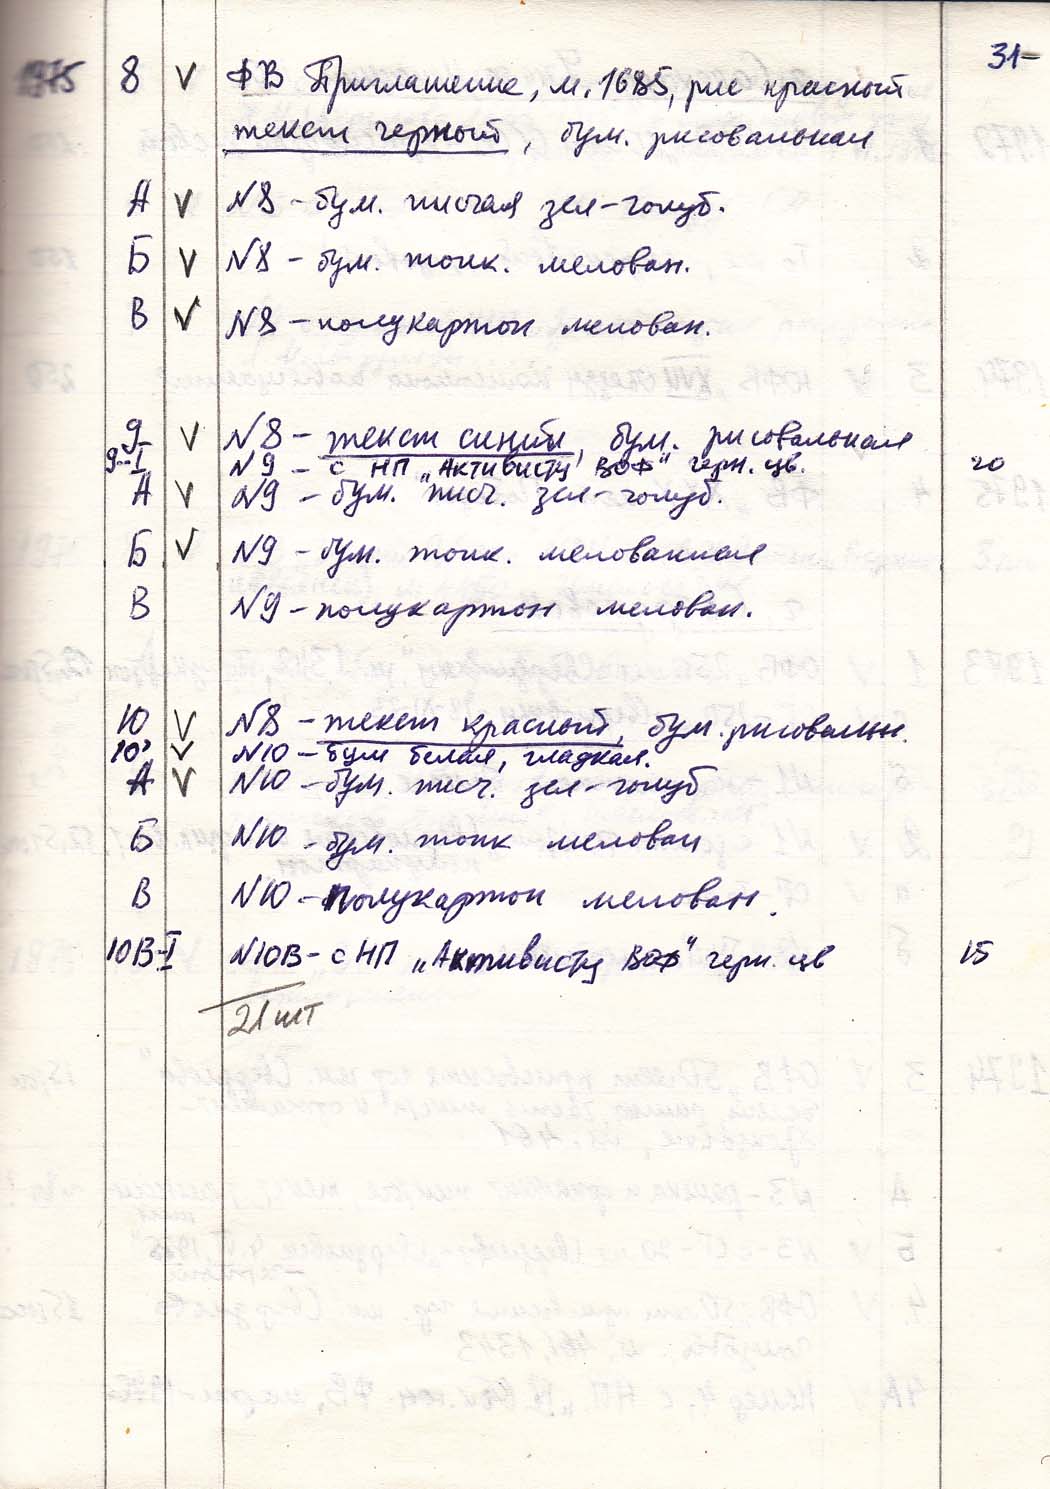 31-
1975 8 V ФВ Приглашение, м. 1685, рис красный
текст черный, бум. рисовальная
А V N8 - бум. писчая зел-голуб.
Б V N8 - бум. тонк. мелован.
В V N8 - полукартон мелован.
9 V N8 - текст синий, бум. рисовальная
9-I N9 - с НП „Активисту ВОФ" черн. цв. 20
А V N9 - бум. писч. зел-голуб.
Б V N9 - бум. тонк. мелованная
В N9 - полукартон мелован.
10 V N8 - текст красный, бум. рисовальн.
10' V N10 - бум белая, гладкая.
А V N10 - бум. писч. зел-голуб
Б N10 - бум. тонк мелован
В N10 - полукартон мелован.
10В-I N10В - с НП „Активисту ВОФ" черн. цв 15
21 шт